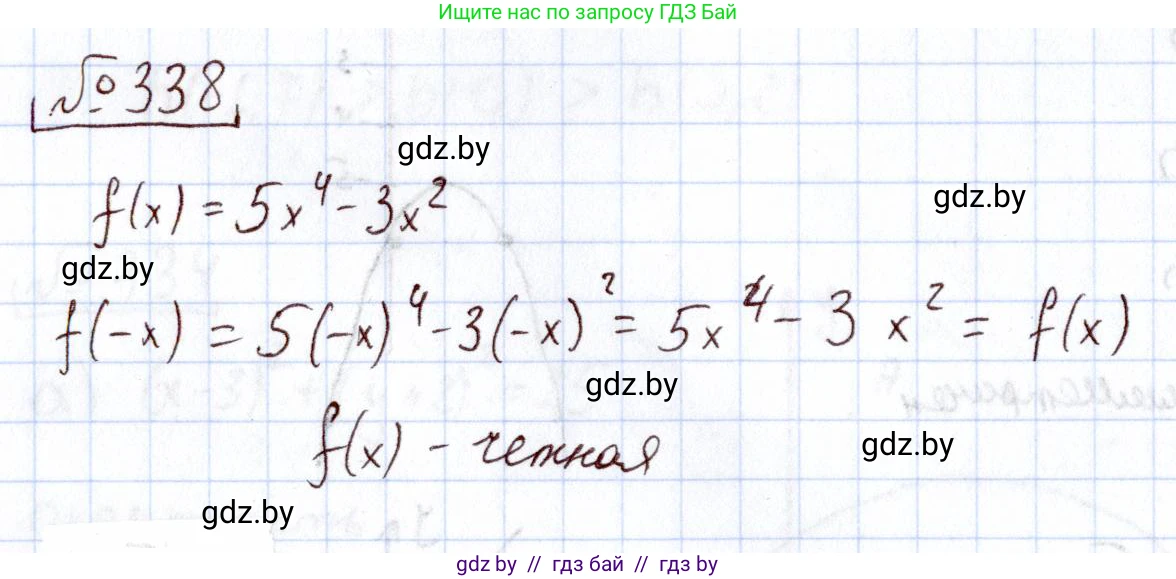 Ищите нас по запросу ГДЗ Бай
№ 338
gdz.by
f(x) = 5x⁴ - 3x²
gdz.by
gdz.by
f(-x) = 5(-x)⁴ - 3(-x)² = 5x⁴ - 3x² = f(x)
gdz.by
f(x) - четная
gdz.by
gdz.by
gdz by // гдз бай // gdz by